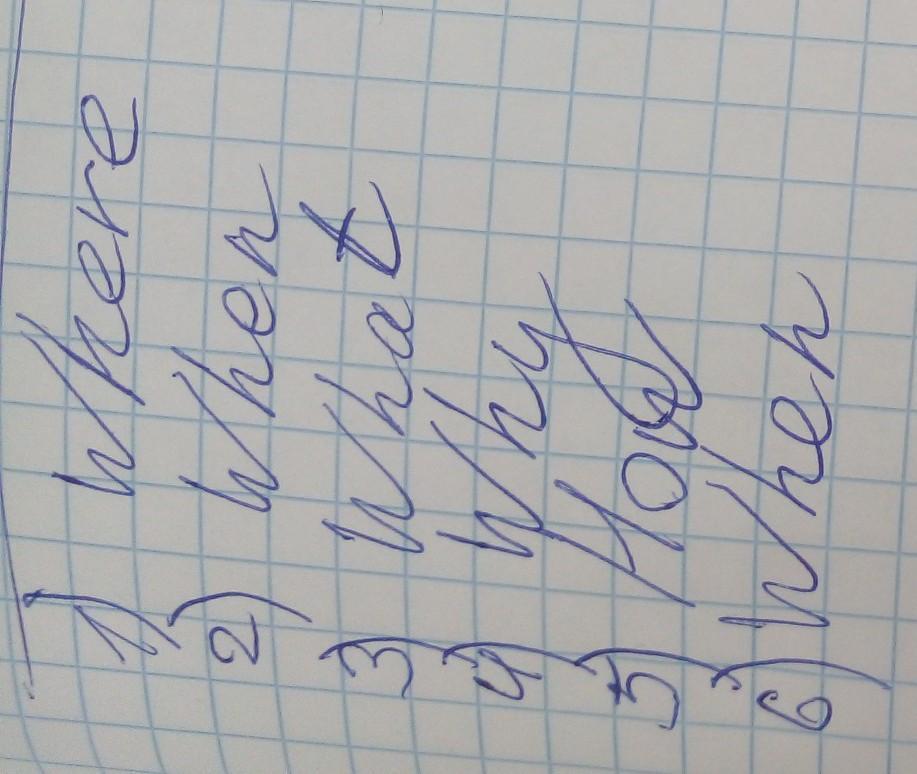 1) Where
2) When
3) What
4) Why
5) How
6) When